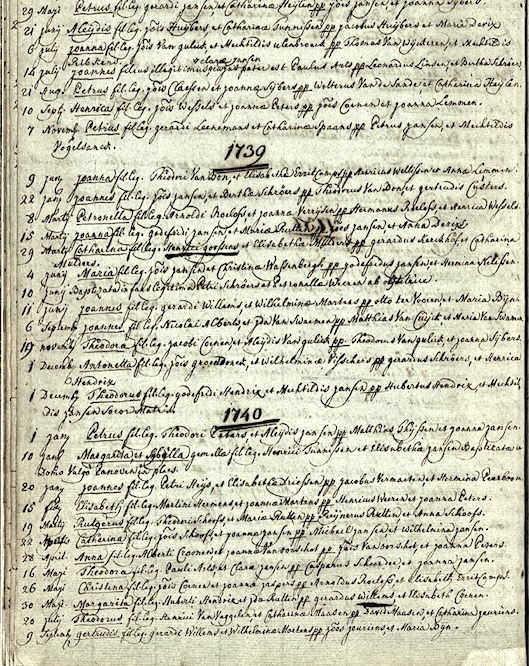 29 Maji Petrus fil leg. gerardi jansen et Catharinæ Heylen pp joïs jansen, et joanna Sybers.
21 junij Aleijdis fil leg. joïs Huijbers et Catharinæ Tunnissen pp jacobus Huijbers et Maria Derix
6 julij joanna fil leg. joïs Van gulik, et Mechtildis pp Thomas Van et Mechtildis
14 julij joannes filius illegit: cujus pater est Paulus Arts pp Leonardus Linsen, et Bertha Schröers
21 Aug. Petrus fil leg. joïs Claesen et joannæ Sijbers pp Welterus Van de Sande, et Catharina Heijlen.
10 Septr Henrica fil leg. joïs Wessels et joannæ Peters pp joïs Coenen, et joanna Lemmen.
7 Novemb Petrus fil leg. gerardi Leenemans et Catharinæ Spaans pp Petrus jansen, et Mechtildis
Vogelsanck.
1739
9 janij joanna fil leg. Theodori Van Don, et Elisabethæ Evertcamps pp Henricus Welissen et Anna Lemmen.
22 janij joannes fil leg. joïs jansen, et Bertha Schröers pp Theodorus Van Don, et gertrudis Custers.
8 Martij Petronella fil leg. Arnoldi Roelofs et joanna Verijsen pp Hermanus Roelofs, et Henrica Wessels.
15 Martij joanna fil leg. godefridi jansen, et Maria Rutten pp joïs jansen et Anna Derix
29 Martij Catharina fil leg. Henrici goossens et Elisabetha Mulders pp gerardus Kerckhof et Catharina
Mulders.
4 junij Maria fil leg. joïs jansen, et Christina Wassenbergh pp godefridus jansen, et Hermina Nelissen.
10 junij Baptizata infans Petri Schröers et Petronella Weeren ab obstetrice.
11 junij joannes fil leg. gerardi Willems et Wilhelminæ Martens pp otto ter Voeren, et Maria Bijn.
6 Septemb joannes fil leg. Nicolai Alberts, et jda Van Swamen pp Matthias Van Cuijk et Maria Van Swamen
19 novemb Theodora fil leg. jacobi Coenen, et Aleijdis Van gulik pp Theodorus Van gulik, et joanna Sijbers.
1 Decemb Antonella fil leg. joïs et Wilhelminæ Visschers pp gerardus Schröers, et Henrica
Hendrix
1 Decemb Theodorus fil leg. godefridi Hendrix, et Mechtildis jansen pp Hubertus Hendrix, et Mechtil-
dis jansen Soror Matris.
1740
1 janij Petrus fil leg. Theodori Peters, et Aleijdis jansen pp Matthias Thijssen, et joanna jansen.
10 janij Margarita, et Sybilla gemella fil leg. Henrici Tunnissen et Elisabetha jansen Baptizata in
Domo Vulgo
20 janij joannes fil leg. Petri Heijs, et Elisabetha Driessen pp jacobus Vermaeten, et Hermina Peerboom.
15 feb. Elisabeth fil leg. Martini Hermens, et joanna Martens pp Henricus Veeren, et joanna Peters.
19 Martij Rutgerus fil leg. Theodori Schoofs, et Maria Rutten pp Reijnerus Rutten, et Anna Schoofs.
22 Catharina fil leg. joïs Schoofs, et joanna jansen pp Michael jansen, et Wilhelmina jansen.
28 April. Anna fil leg. Alberti Coonen, et joanna Van oorschot pp joïs Van oorschot, et joanna Peters.
16 Maji Theodora fil leg. Pauli Arts, et Clara jansen pp Casparus Scheerder, et joanna jansen.
26 Maji Christina fil leg. joïs Coenen, et joanna jaspers pp Arnoldus Roelofs, et Elisabeth Evertcamps.
30 Maji Margareta fil leg. Huberti Hendrix, et jda Rutten pp gerardus Willems, et Elisabeth Coenen.
20 julij Theodorus fil leg. Henrici Van Veggelen, et Catharina Maassen pp David Maassen, et Catharina jeuriens.
9 Septemb gertrudis fil leg. gerardi Willems, et Wilhelminæ Martens pp joïs jeuriens, et Maria Bijn.